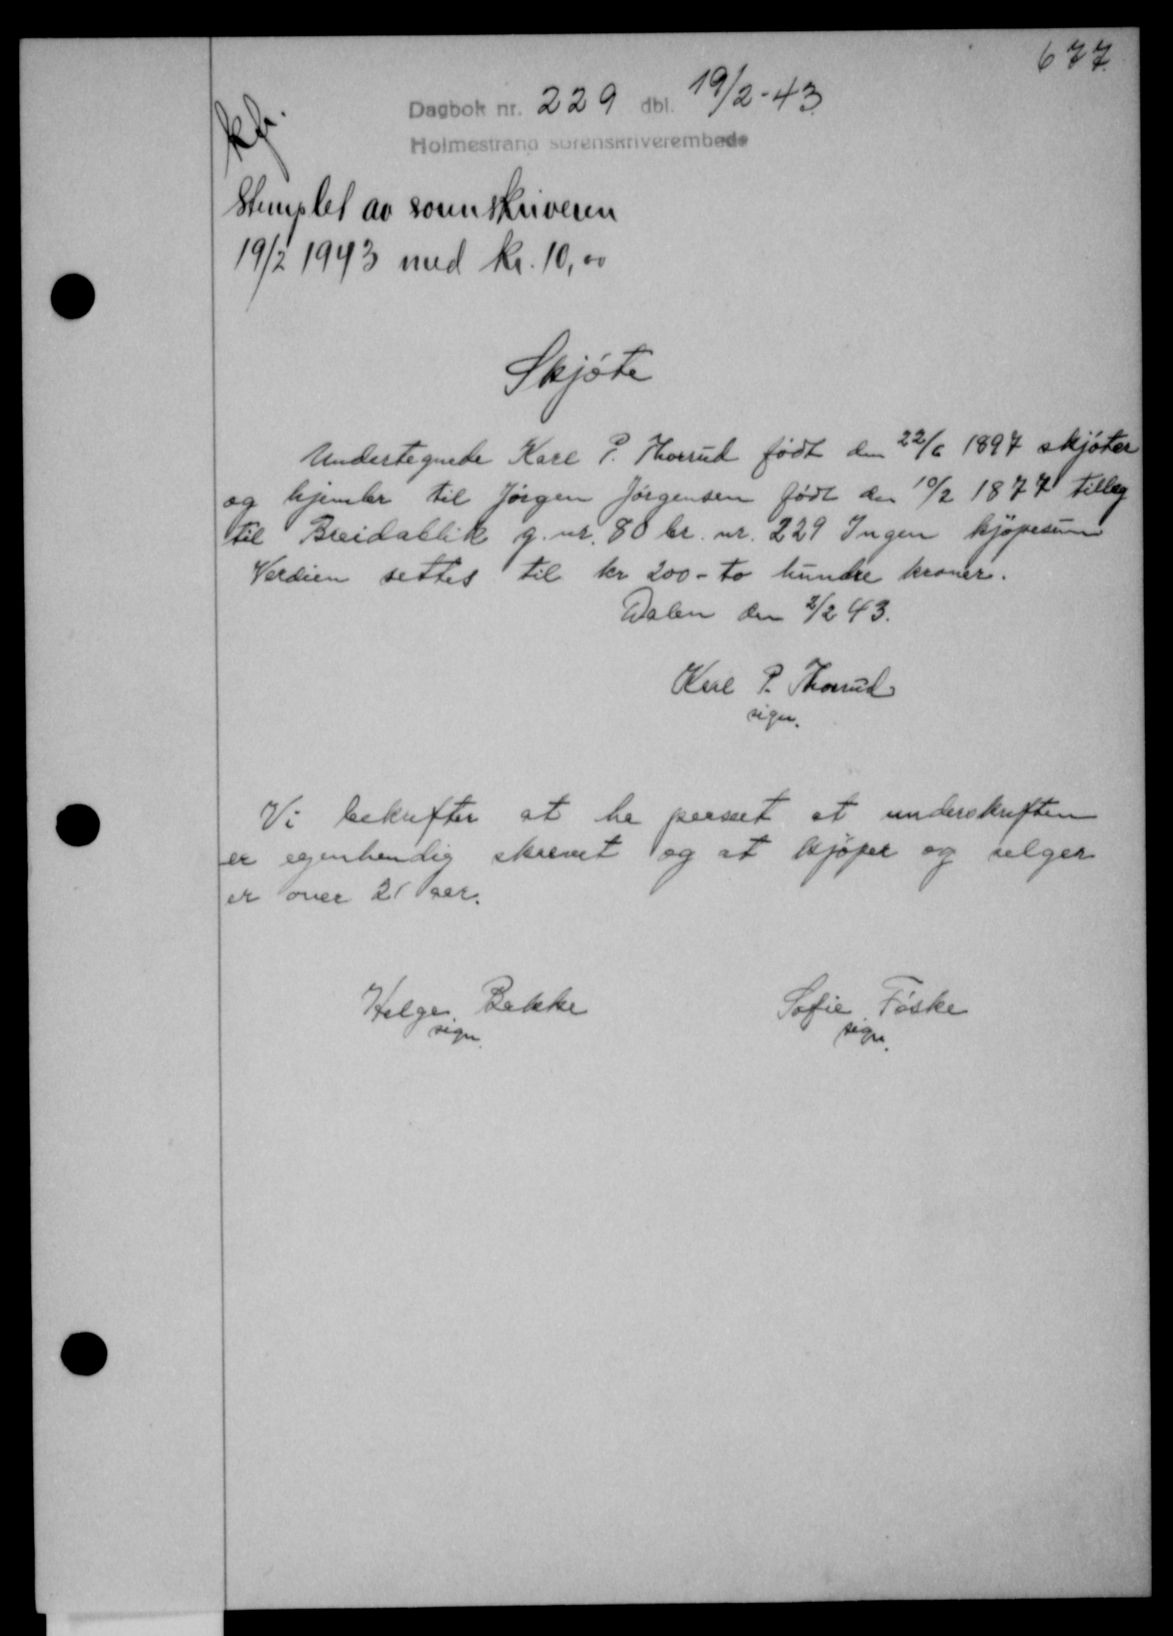 677
Dagbok nr. 229 dbl. 19/2-43
Holmestrand sorenskriverembede
Stemplet av sorenskriveren
19/2 1943 med kr. 10,00
Skjöte
Undertegnede Karl P. Thorrud født den 22/6 1897 skjöter
og hjemler til Jörgen Jörgensen født den 10/2 1877 tilleg
til Breidablik g. nr. 80 br. nr. 229 Ingen kjöpesum
Verdien settes til kr 200 - to hundre kroner.
Dalen den 2/2 43.
Karl P. Thorrud
sign.
Vi bekrefter at ha at underskriften
er egenhendig skrevet og at kjöper og selger
er over 21 aar.
Helge Bakke Sofie Föske
sign. sign.